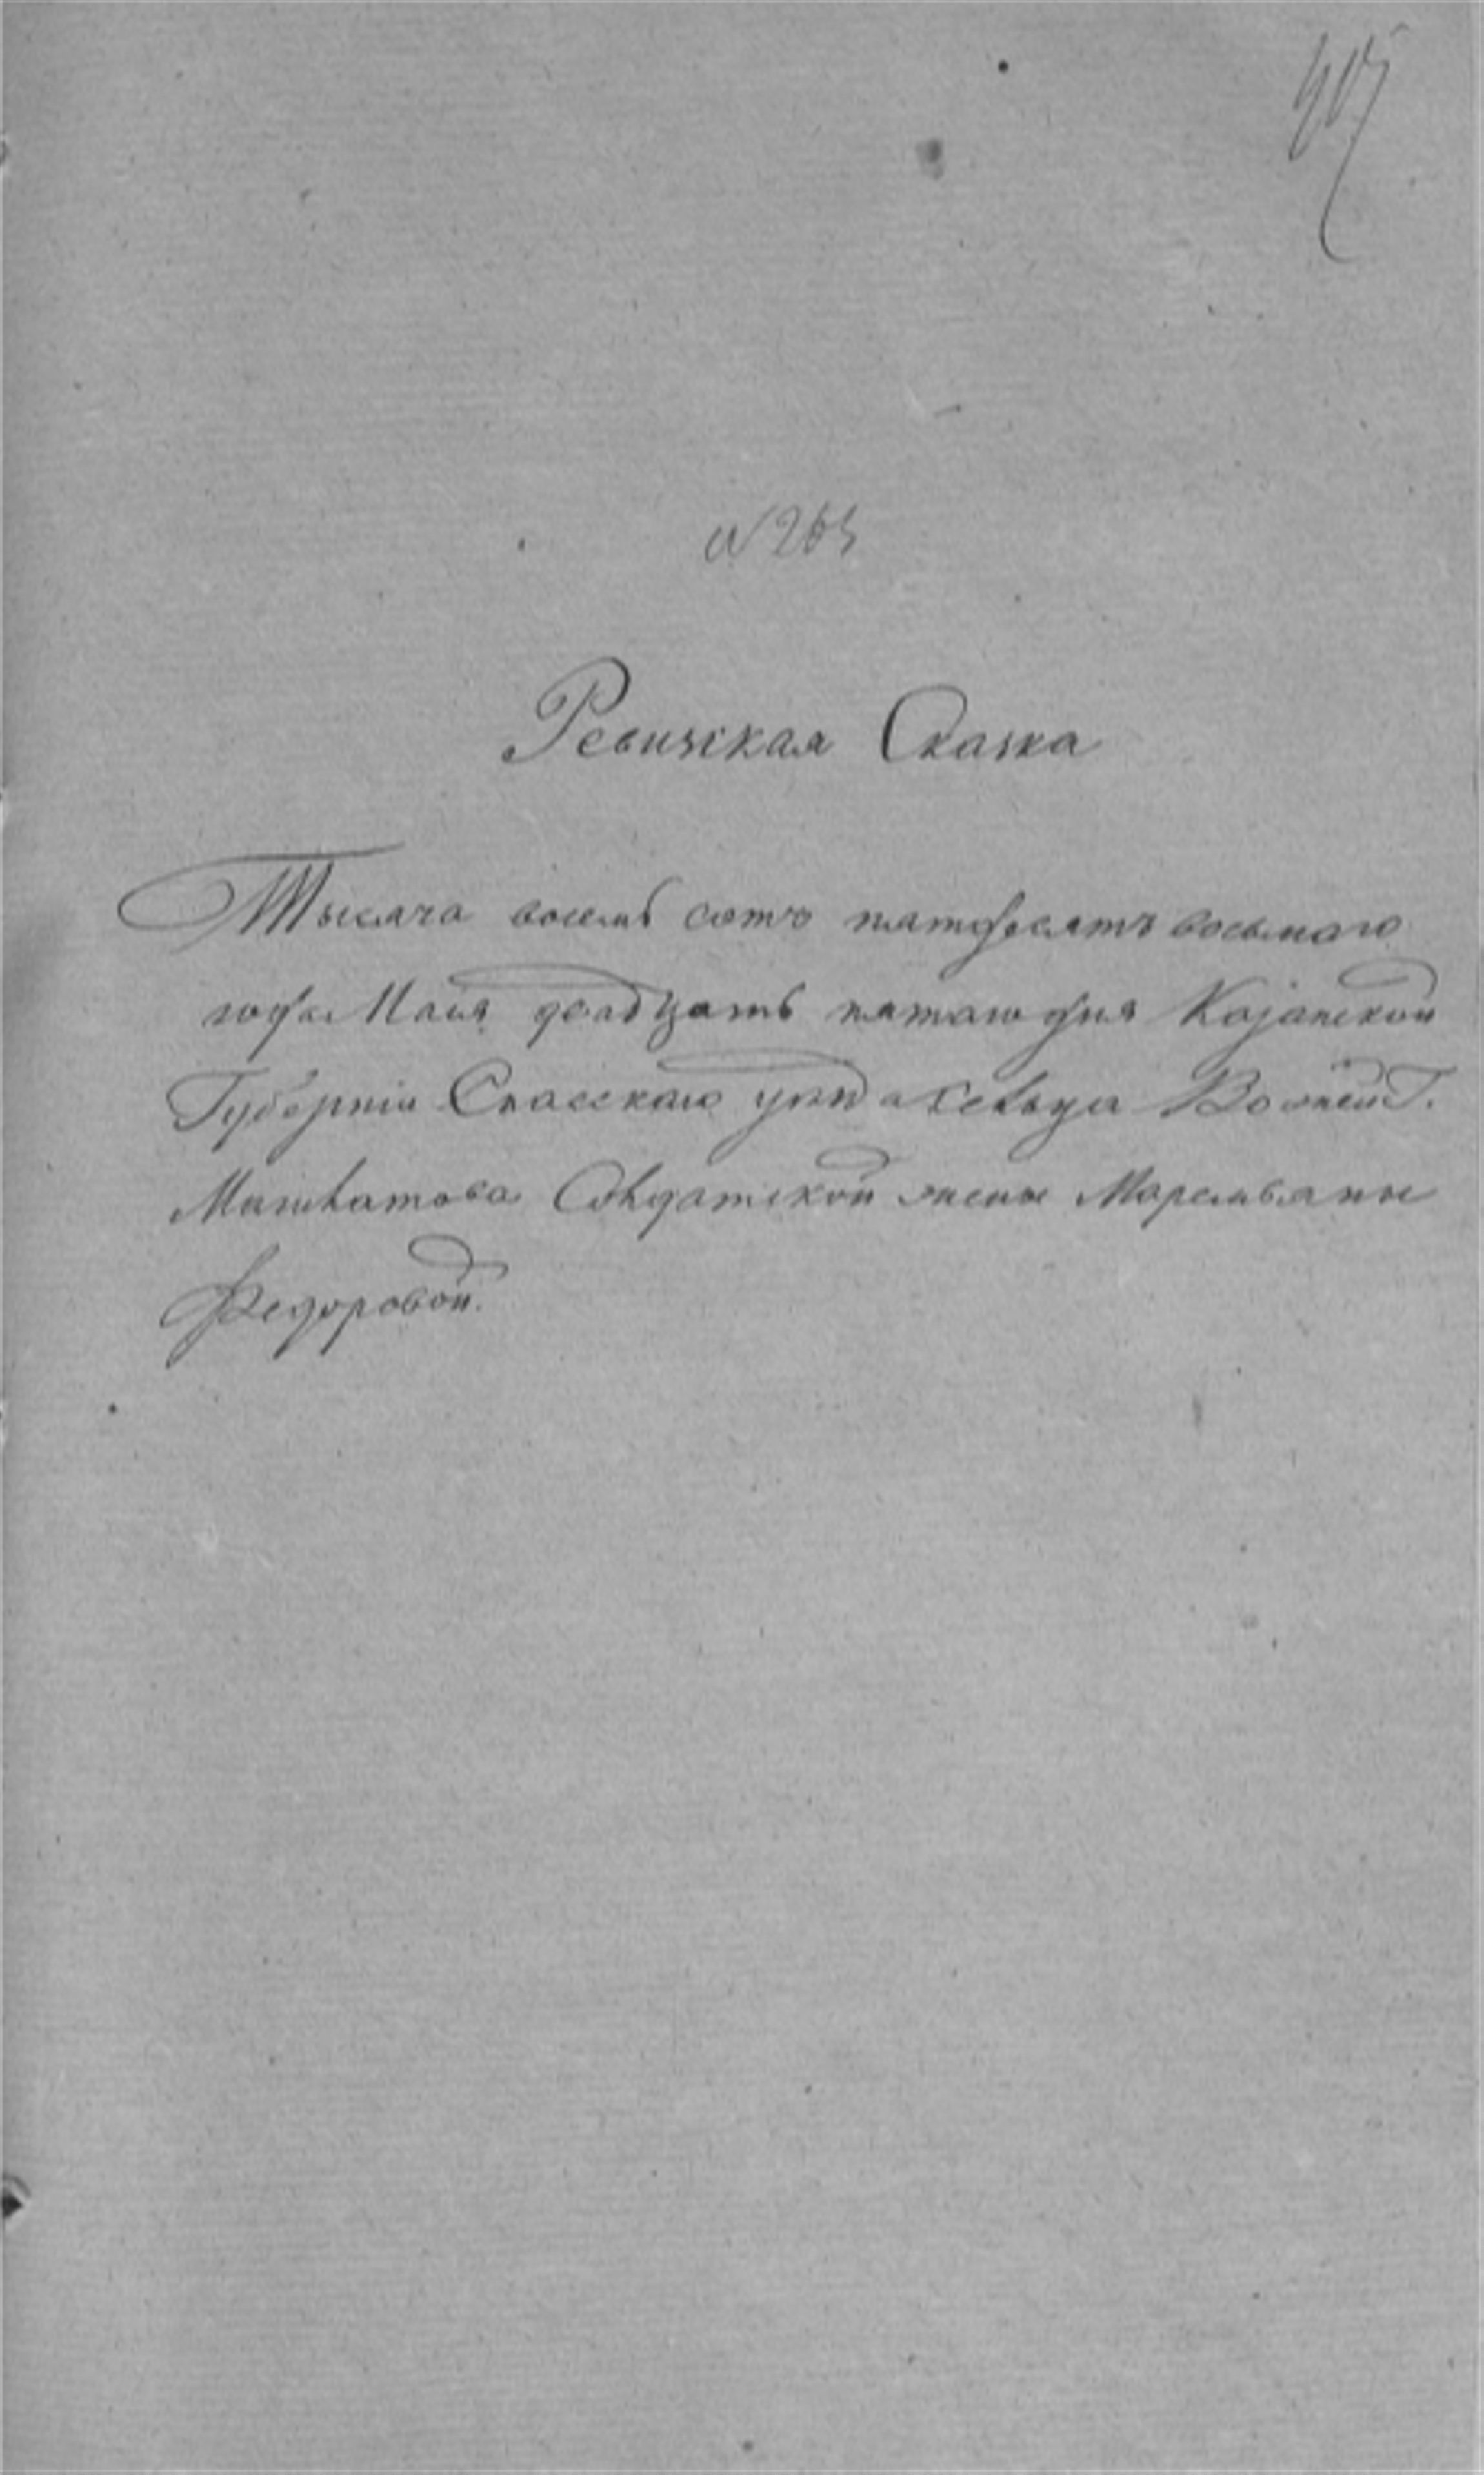 405
№ 265
Ревизская Сказка
Тысяча восемь сотъ пятдесятъ восьмаго
года Маія двадцать пятаго дня Казанской
Губерніи Спасскаго уѣзда Сельца
Солдатской жены Маремьяны
Федоровой.